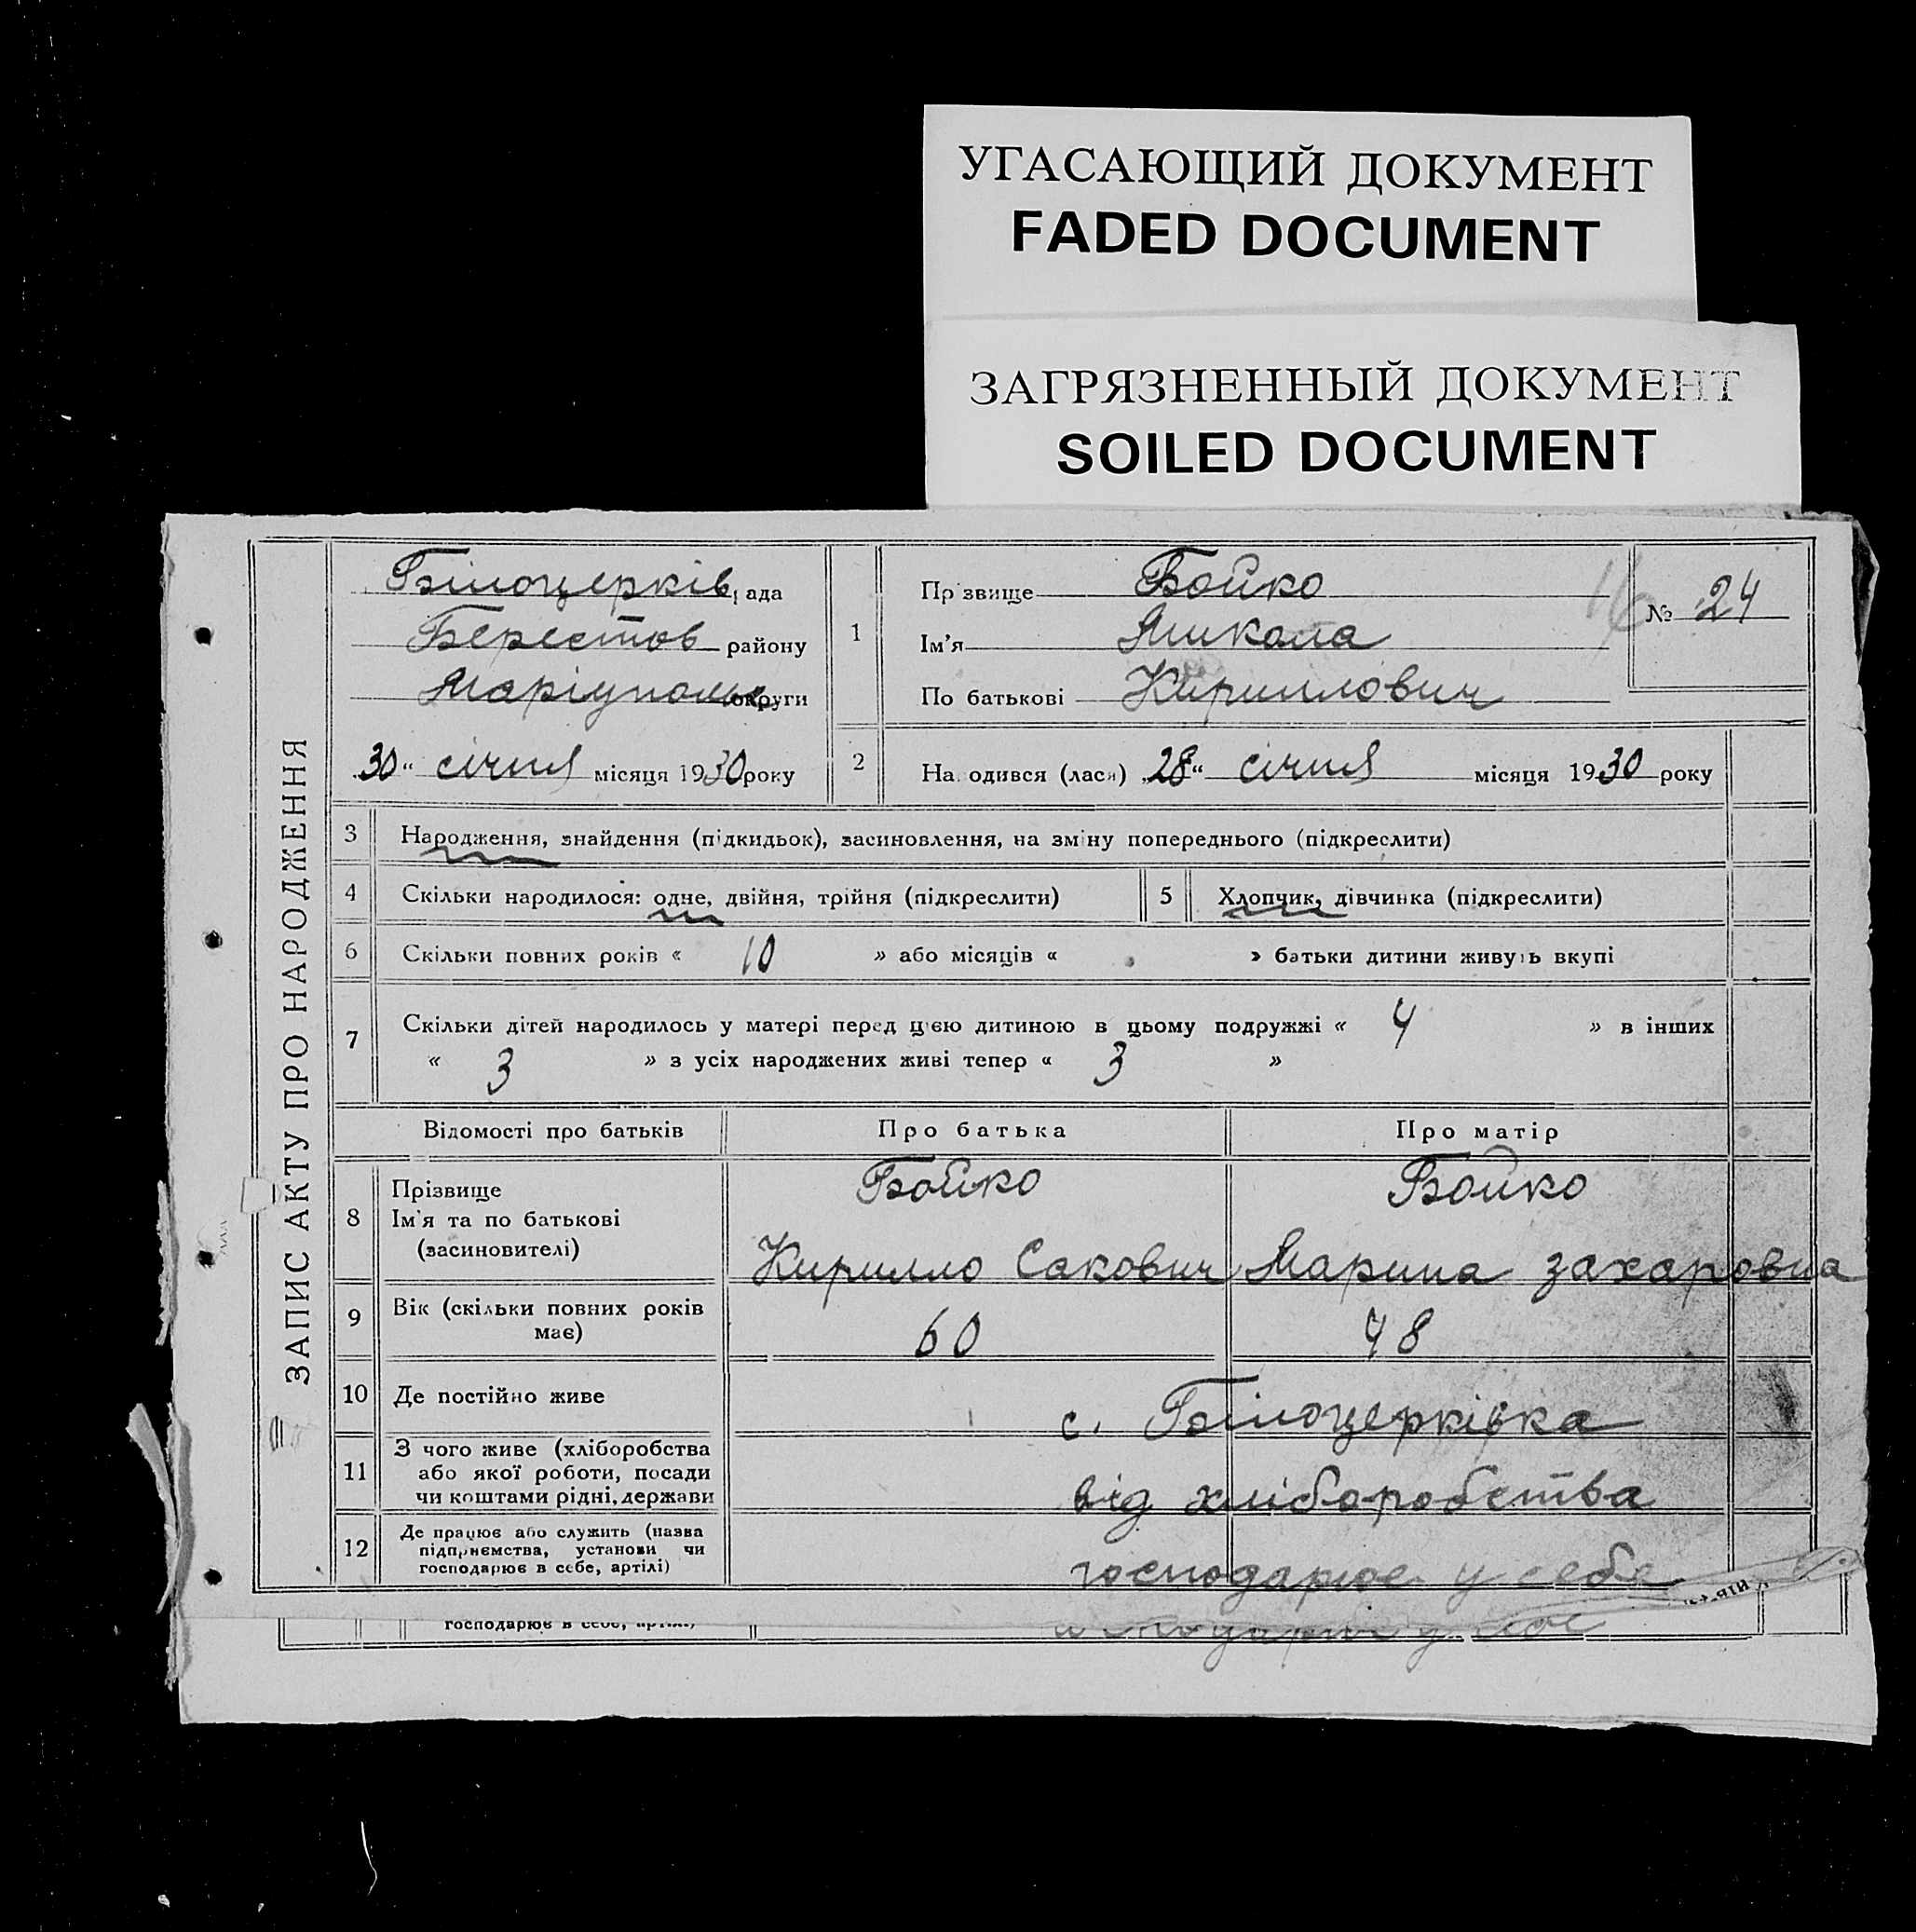 УГАСАЮЩИЙ ДОКУМЕНТ
FADED DOCUMENT
ЗАГРЯЗНЕННЫЙ ДОКУМЕНТ
SOILED DOCUMENT
ЗАПИС АКТУ ПРО НАРОДЖЕННЯ
Білоцерків рада
Берестов району
Маріуполь округи
30 " січня місяця 1930 року
1 Прізвище Бойко
Ім'я Микола
По батькові Кириллович
№ 24
2 Народився (лася) „28" січня місяця 1930 року
3 Народження, знайдення (підкидьок), засиновлення, на зміну попереднього (підкреслити)
4 Скільки народилося: одне, двійня, трійня (підкреслити) 5 Хлопчик, дівчинка (підкреслити)
6 Скільки повних років « 10 » або місяців « » батьки дитини живуть вкупі
7 Скільки дітей народилось у матері перед цією дитиною в цьому подружжі « 4 » в інших
« 3 » з усіх народжених живі тепер « 3 »
Відомості про батьків Про батька Про матір
8 Прізвище Бойко Бойко
Ім'я та по батькові
(засиновителі) Кирилло Сакович Марина Захаровна
9 Вік (скільки повних років
має) 60 48
10 Де постійно живе с. Білоцерківка
11 З чого живе (хліборобства
або якої роботи, посади
чи коштами рідні, держави від хліборобства
12 Де працює або служить (назва
підприємства, установи чи
господарює в себе, артілі) господарює у себе
господарює в себе, артілі)